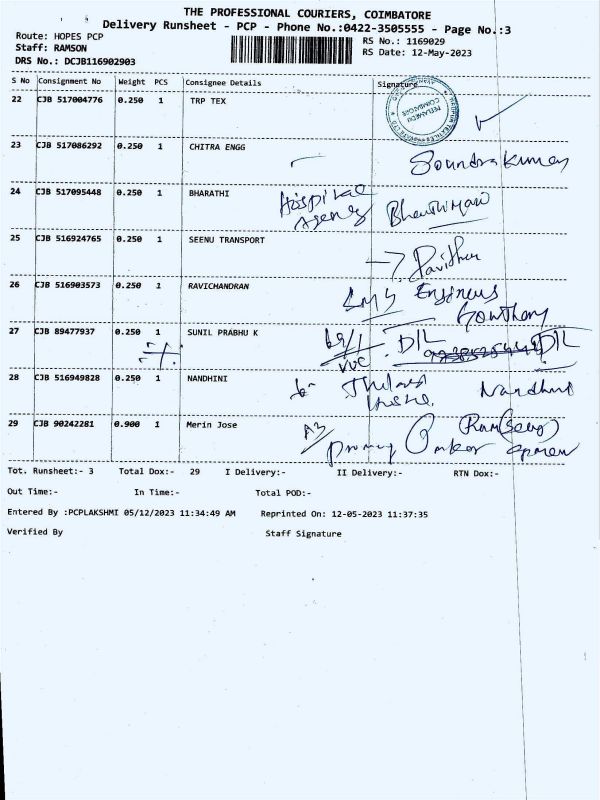 THE PROFESSIONAL COURIERS, COIMBATORE
Delivery Runsheet - PCP - Phone No.:0422-3505555 - Page No.:3
Route: HOPES PCP
RS No.: 1169029
Staff: RAMSON
RS Date: 12-May-2023
DRS No.: DCJB116902903
S No Consignment No Weight PCS Consignee Details Signature
22 CJB 517004776 0.250 1 TRP TEX
PEELAMEDU
COIMBATORE
23 CJB 517086292 0.250 1 CHITRA ENGG
Soundrakumar
24 CJB 517095448 0.250 1 BHARATHI Hospital
Agency
25 CJB 516924765 0.250 1 SEENU TRANSPORT
Pavithra
26 CJB 516903573 0.250 1 RAVICHANDRAN
SMS Engineers
Gowtham
27 CJB 89477937 0.250 1 SUNIL PRABHU K 69/1 DIL DIL
VVC
28 CJB 516949828 0.250 1 NANDHINI
Nandhini
29 CJB 90242281 0.900 1 Merin Jose A3
Tot. Runsheet:- 3 Total Dox:- 29 I Delivery:- II Delivery:- RTN Dox:-
Out Time:- In Time:- Total POD:-
Entered By :PCPLAKSHMI 05/12/2023 11:34:49 AM Reprinted On: 12-05-2023 11:37:35
Verified By Staff Signature